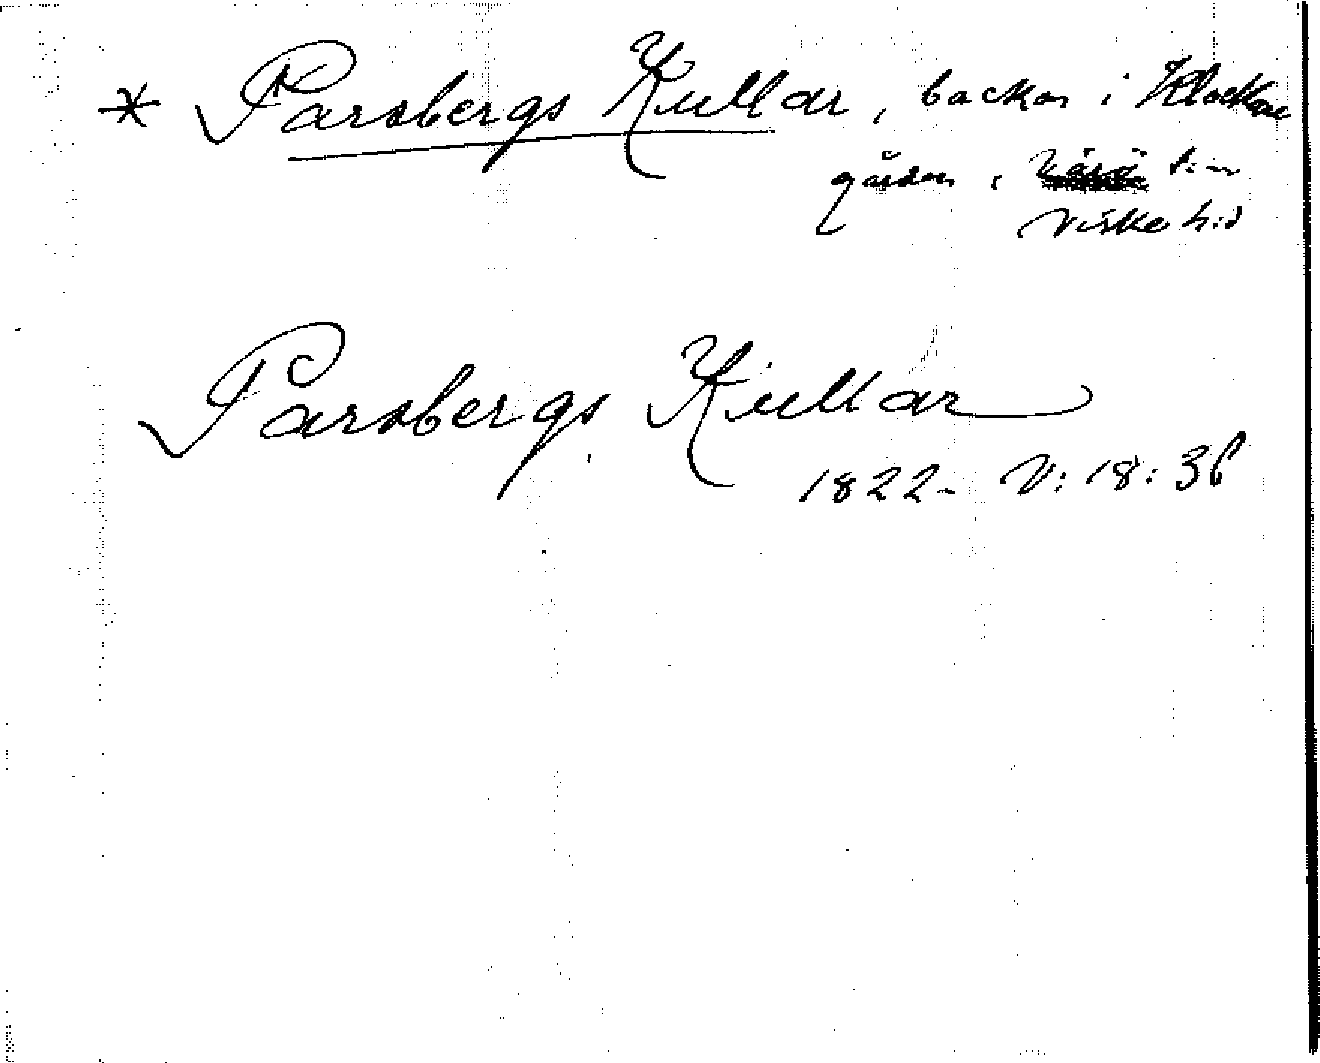 * Parsbergs Kullar, backar i Klockare
gården,
Viske h:d
Parsbergs Kullar
1822- V: 18: 36